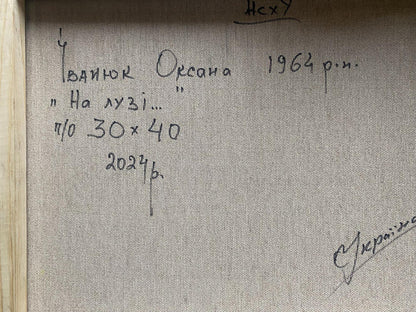 НСХУ
Іванюк Оксана 1964 р.н.
„ На лузі... "
п/о 30 х 40
2024р.
Україна